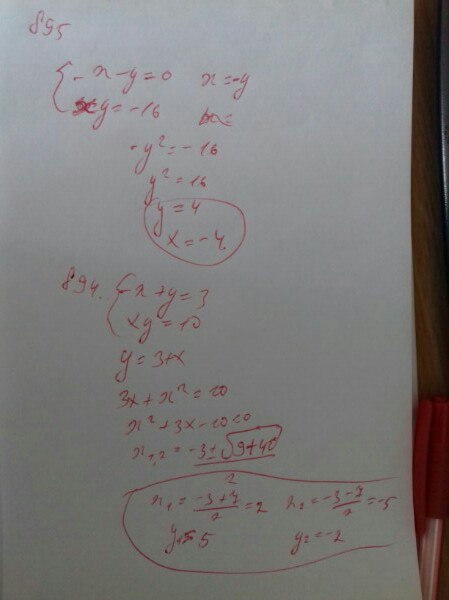 895
{ -x-y=0   x=-y
xy=-16
-y²=-16
y²=16
y=4
x=-4
894. { -x+y=3
xy=10
y=3+x
3x+x²=10
x²+3x-10=0
x₁,₂ = (-3±√(9+40))/2
x₁=(-3+7)/2=2   x₂=(-3-7)/2=-5
y₁=5   y₂=-2